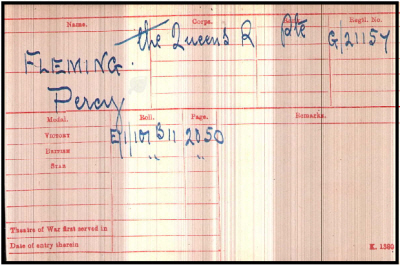 Name. Corps. Regtl. No.
the Queen's R Pte G/21157
FLEMING.
Percy
Medal. Roll. Page. Remarks.
VICTORY E/1/107 B 11 2050
BRITISH " "
STAR
Theatre of War first served in
Date of entry therein K. 1380